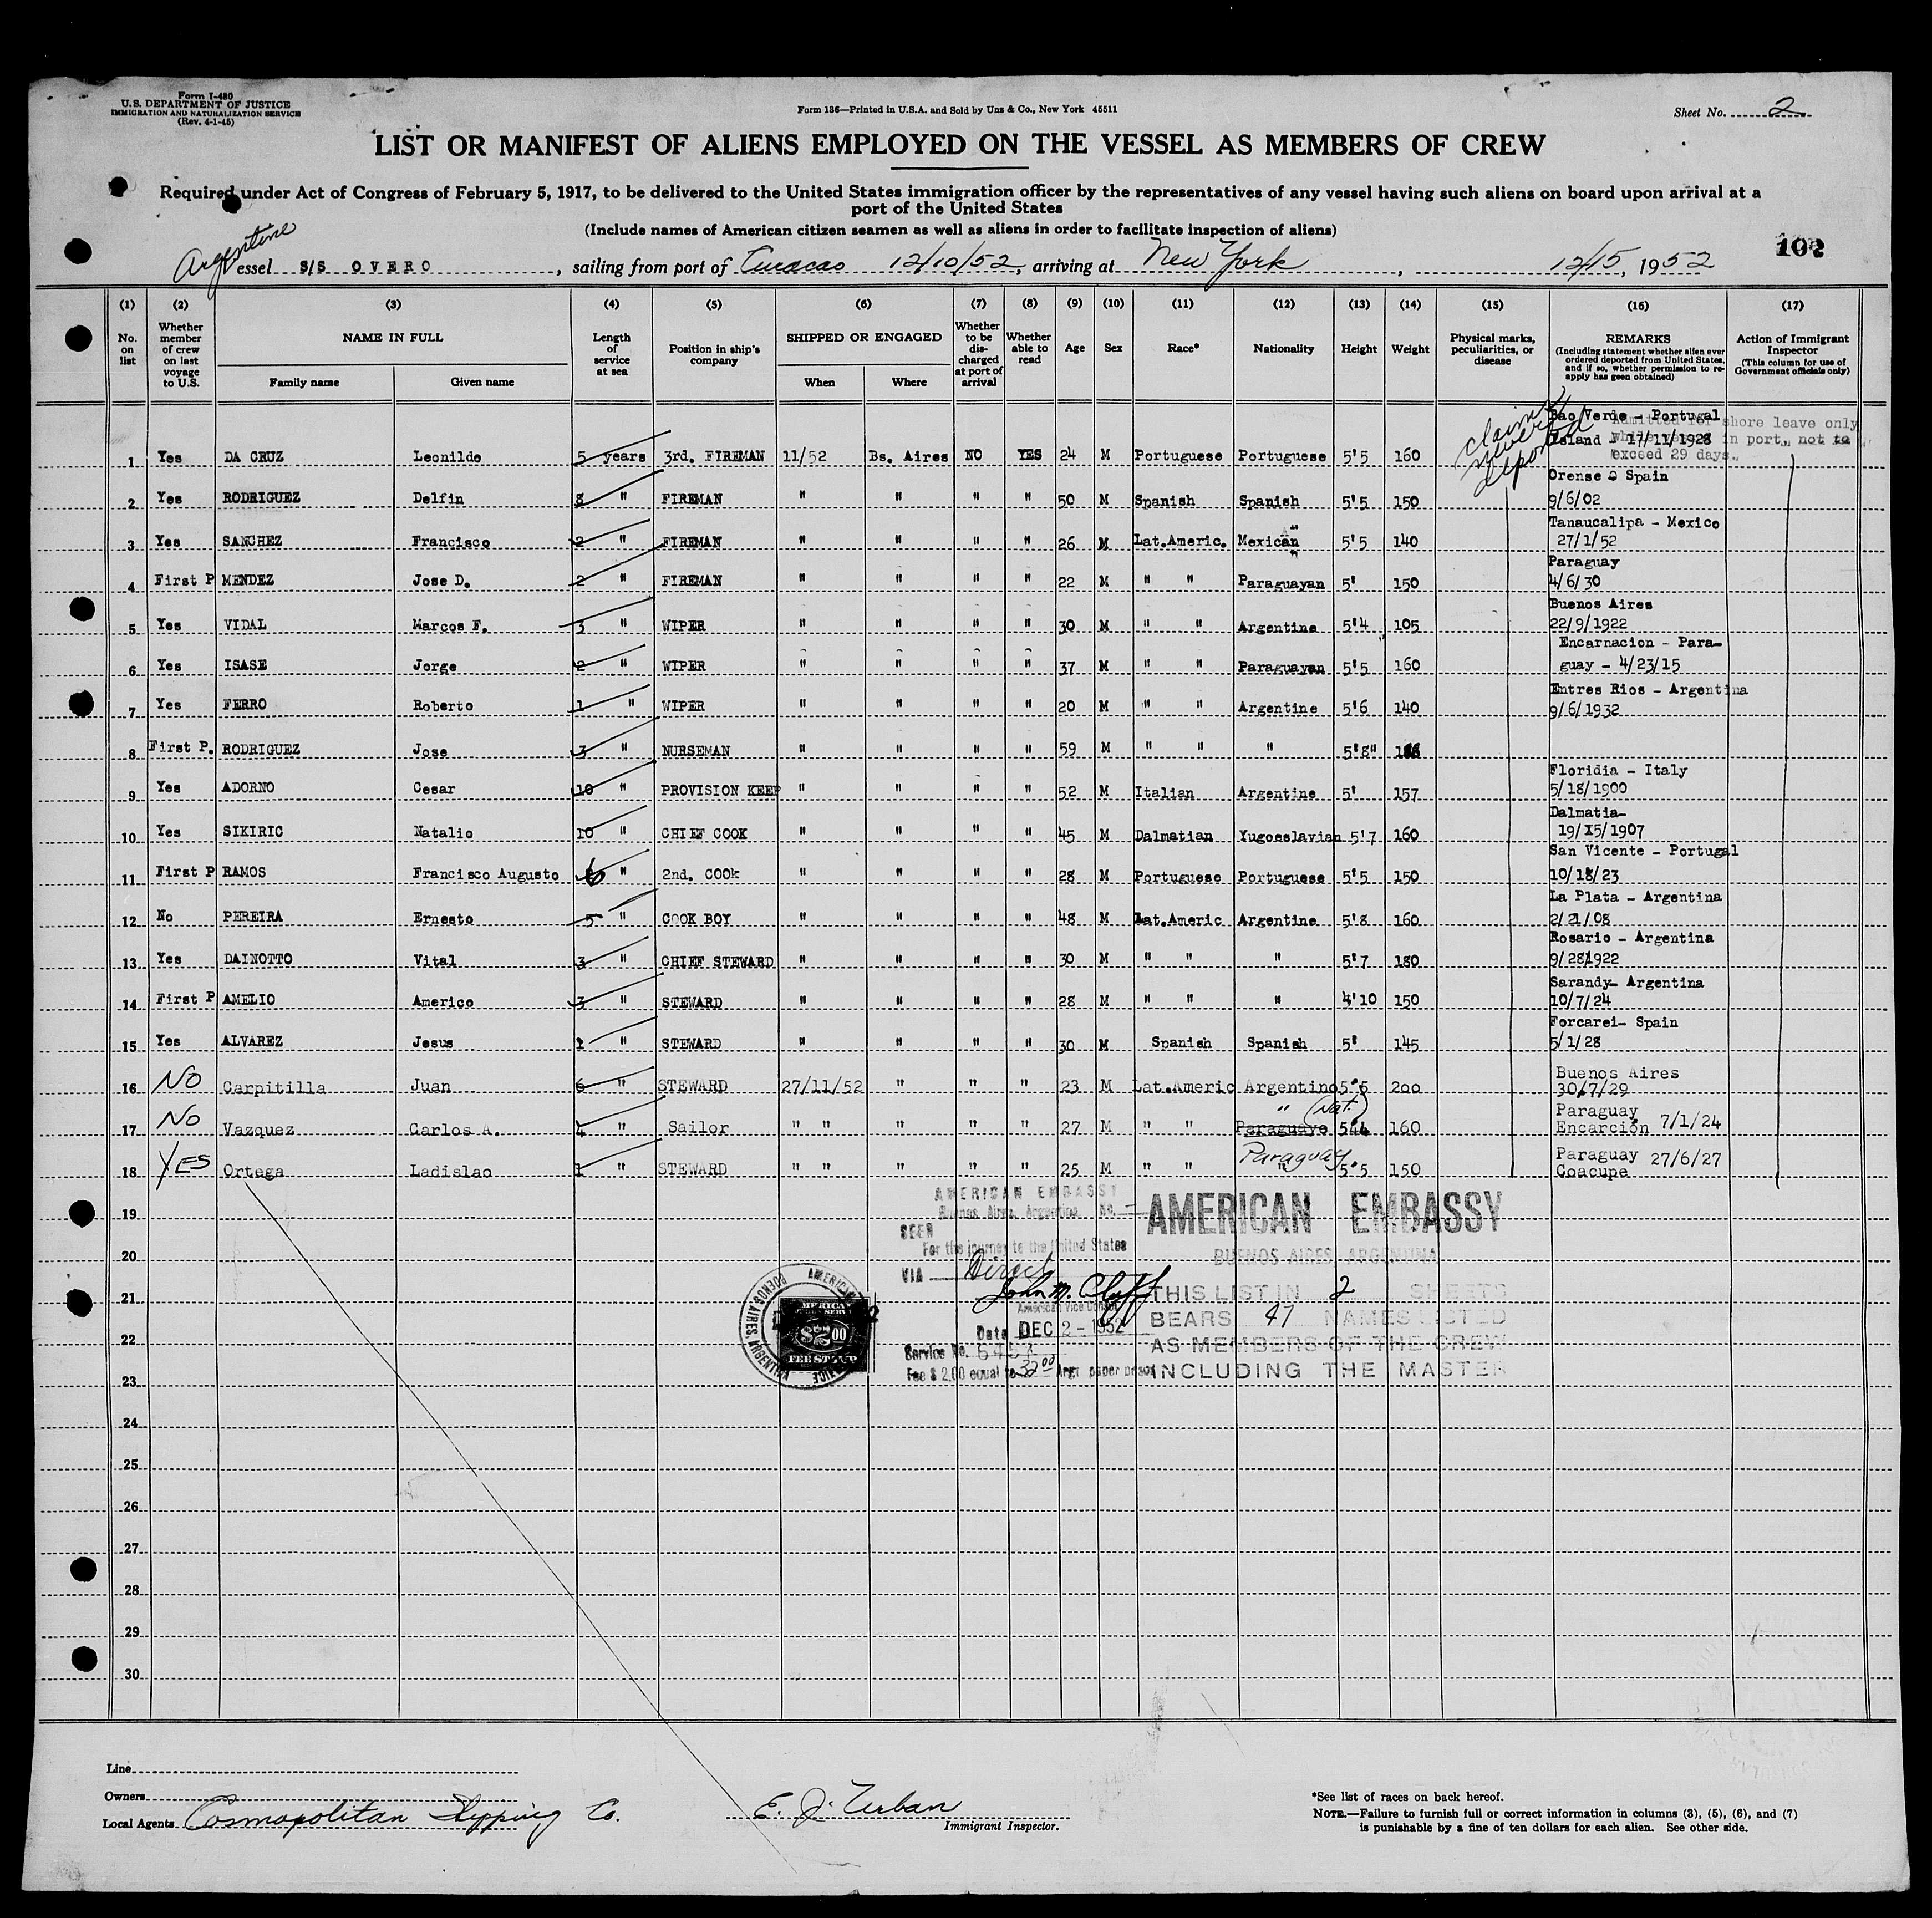 Form I-480
U.S. DEPARTMENT OF JUSTICE
IMMIGRATION AND NATURALIZATION SERVICE
(Rev. 4-1-45)
Form 136—Printed in U.S.A. and Sold by Unz & Co., New York 45511
Sheet No. 2
LIST OR MANIFEST OF ALIENS EMPLOYED ON THE VESSEL AS MEMBERS OF CREW
Required under Act of Congress of February 5, 1917, to be delivered to the United States immigration officer by the representatives of any vessel having such aliens on board upon arrival at a
port of the United States
(Include names of American citizen seamen as well as aliens in order to facilitate inspection of aliens)
102
Argentine
Vessel S/S OVERO, sailing from port of Curacao 12/10/52, arriving at New York, 12/15, 1952
(1) (2) (3) (4) (5) (6) (7) (8) (9) (10) (11) (12) (13) (14) (15) (16) (17)
No. on list
Whether member of crew on last voyage to U.S.
NAME IN FULL
Family name
Given name
Length of service at sea
Position in ship's company
SHIPPED OR ENGAGED
When
Where
Whether to be discharged at port of arrival
Whether able to read
Age
Sex
Race*
Nationality
Height
Weight
Physical marks, peculiarities, or disease
REMARKS
(Including statement whether alien ever ordered deported from United States, and if so, whether permission to re-apply has been obtained)
Action of Immigrant Inspector
(This column for use of Government officials only)
claims never deported
Admitted for shore leave only
while vessel in port, not to
exceed 29 days.
Bao Verde - Portugal
Island - 17/11/1928
1 Yes DA CRUZ Leonildo 5 years 3rd. FIREMAN 11/52 Bs. Aires NO YES 24 M Portuguese Portuguese 5'5 160
Orense Spain
2 Yes RODRIGUEZ Delfin 8 " FIREMAN " " " " 50 M Spanish Spanish 5'5 150 9/6/02
Tanaucalipa - Mexico
3 Yes SANCHEZ Francisco 2 " FIREMAN " " " " 26 M Lat.Americ. Mexican 5'5 140 27/1/52
Paraguay
4 First P MENDEZ Jose D. 2 " FIREMAN " " " " 22 M " " Paraguayan 5' 150 4/6/30
Buenos Aires
5 Yes VIDAL Marcos F. 3 " WIPER " " " " 30 M " " Argentine 5'4 105 22/9/1922
Encarnacion - Para-
6 Yes ISASE Jorge 2 " WIPER " " " " 37 M " " Paraguayan 5'5 160 guay - 4/23/15
Entres Rios - Argentina
7 Yes FERRO Roberto 1 " WIPER " " " " 20 M " " Argentine 5'6 140 9/6/1932
8 First P. RODRIGUEZ Jose 3 " NURSEMAN " " " " 59 M " " " 5'8"
Floridia - Italy
9 Yes ADORNO Cesar 10 " PROVISION KEEP " " " " 52 M Italian Argentine 5' 157 5/18/1900
Dalmatia-
10 Yes SIKIRIC Natalio 10 " CHIEF COOK " " " " 45 M Dalmatian Yugoeslavian 5'7 160 19/I5/1907
San Vicente - Portugal
11 First P RAMOS Francisco Augusto 6 " 2nd. COOk " " " " 28 M Portuguese Portuguese 5'5 150 10/18/23
La Plata - Argentina
12 No PEREIRA Ernesto 5 " COOK BOY " " " " 48 M Lat.Americ Argentine 5'8 160 2/21/08
Rosario - Argentina
13 Yes DAINOTTO Vital 3 " CHIEF STEWARD " " " " 30 M " " " 5'7 180 9/28/1922
Sarandy- Argentina
14 First P AMELIO Americo 3 " STEWARD " " " " 28 M " " " 4'10 150 10/7/24
Forcarei- Spain
15 Yes ALVAREZ Jesus 1 " STEWARD " " " " 30 M Spanish Spanish 5' 145 5/1/28
Buenos Aires
16 NO Carpitilla Juan 6 " STEWARD 27/11/52 " " " 23 M Lat.Americ Argentino 5'5 200 30/7/29
" (Nat.)
Paraguay
17 NO Vazquez Carlos A. 4 " Sailor " " " " " 27 M " " Paraguayo 5'4 160 Encarción 7/1/24
Paraguay
Paraguay 27/6/27
18 YES Ortega Ladislao 1 " STEWARD " " " " " 25 M " " " 5'5 150 Coacupe
19
20
21
22
23
24
25
26
27
28
29
30
AMERICAN EMBASSY
Buenos Aires, Argentina. No.
SEEN
For the journey to the United States
VIA Direct
John M. Cluff
American Vice Consul
Date DEC 2 - 1952
Service No.
Fee $ 2,00 equal to 32 00 Arg. paper pesos
$2 00
FEE STAMP
BUENOS AIRES, ARGENTINA
AMERICAN EMBASSY
BUENOS AIRES, ARGENTINA
THIS LIST IN 2 SHEETS
BEARS 47 NAMES LISTED
AS MEMBERS OF THE CREW
INCLUDING THE MASTER
Line
Owners
Local Agents Cosmopolitan Shipping Co.
E. J. Urban
Immigrant Inspector.
*See list of races on back hereof.
NOTE.—Failure to furnish full or correct information in columns (3), (5), (6), and (7)
is punishable by a fine of ten dollars for each alien. See other side.